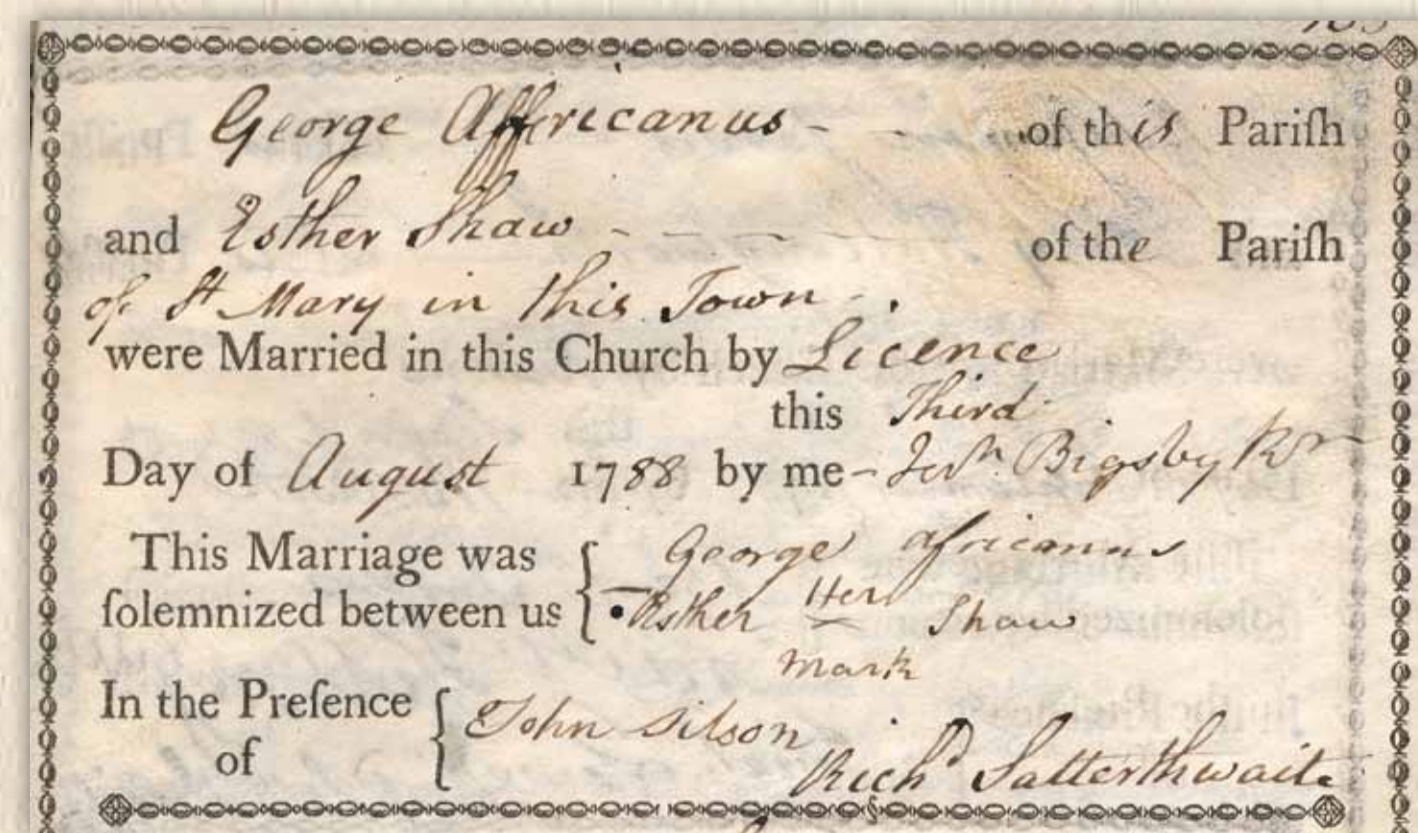 George Affricanus - - of this Pariſh
and Esther Shaw - - - - of the Pariſh
of St Mary in this Town - .
were Married in this Church by Licence
this Third
Day of August 1788 by me - Jno Bigsby
This Marriage was { George africanus
ſolemnized between us { Esther Her Shaw
mark
In the Preſence { John Silson
of Richd Satterthwaite